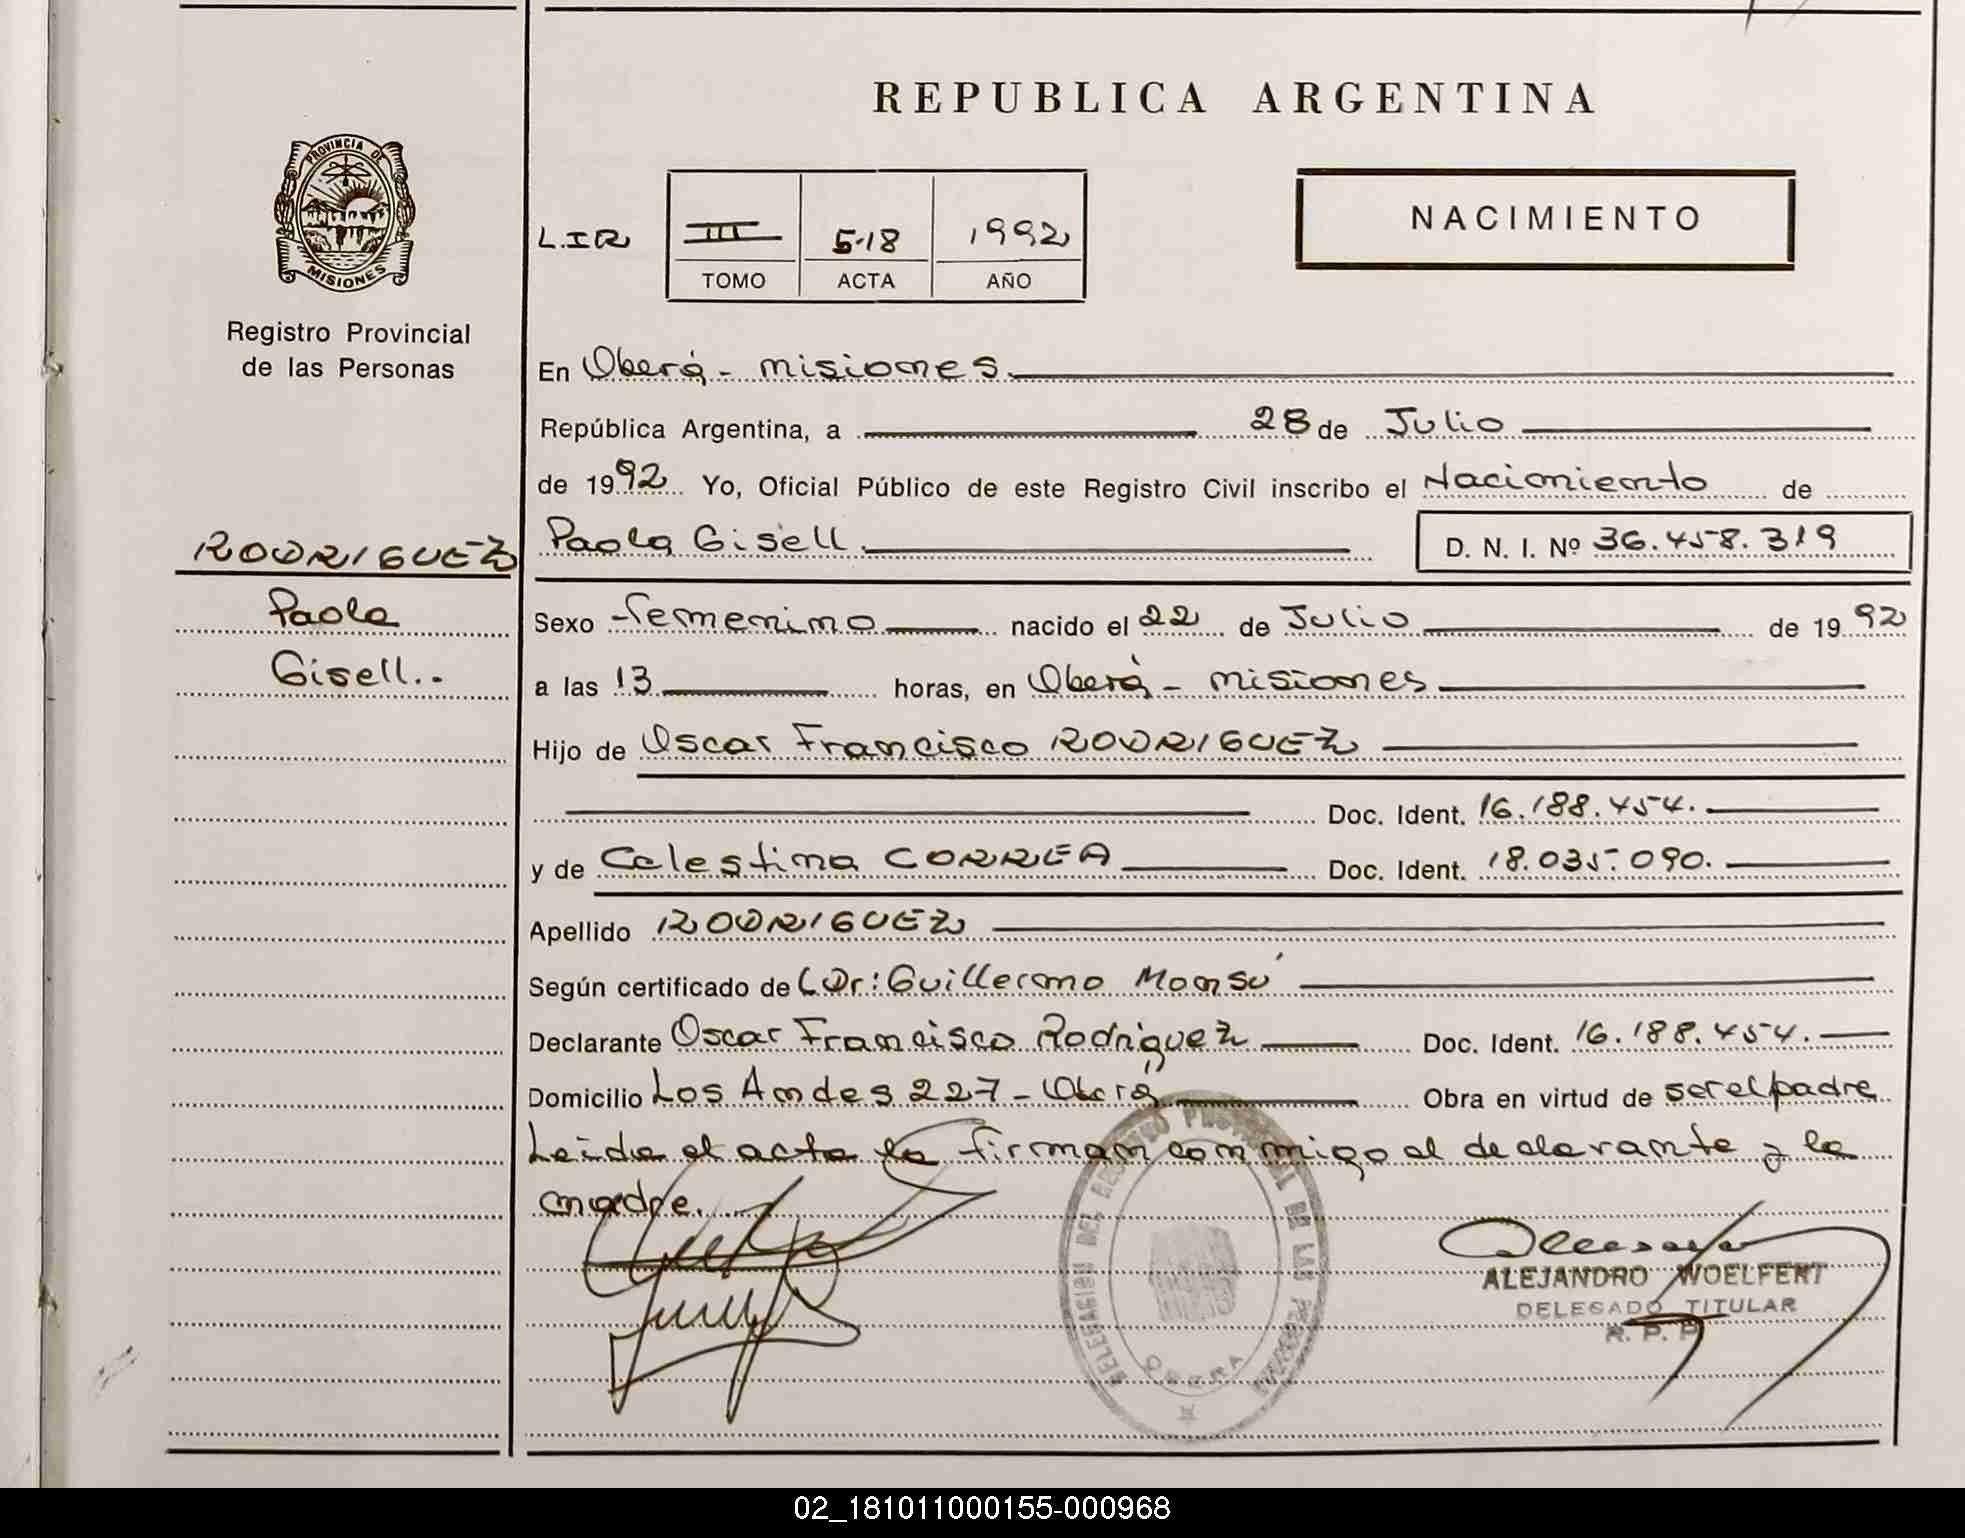 REPUBLICA ARGENTINA
PROVINCIA DE
MISIONES
Registro Provincial
de las Personas
L.IR III 518 1992
TOMO ACTA AÑO
NACIMIENTO
En Oberá - misiones
República Argentina, a 28 de Julio
de 1992 Yo, Oficial Público de este Registro Civil inscribo el Nacimiento de
RODRIGUEZ
Paola Gisell. D. N. I. Nº 36.458.319
Paola
Gisell..
Sexo femenino nacido el 22 de Julio de 19 92
a las 13 horas, en Oberá - misiones
Hijo de Oscar Francisco RODRIGUEZ
Doc. Ident. 16.188.454.
y de Celestina CORREA Doc. Ident. 18.035.090.
Apellido RODRIGUEZ
Según certificado de Dr: Guillermo Monsú
Declarante Oscar Francisco Rodriguez Doc. Ident. 16.188.454.
Domicilio Los Andes 227 - Oberá Obra en virtud de ser el padre
Leida el acta la firman conmigo el declarante y la
madre.
DELEGACION DEL REGISTRO PROVINCIAL DE LAS PERSONAS
OBERA
ALEJANDRO WOELFERT
DELEGADO TITULAR
R. P. P.
02_181011000155-000968